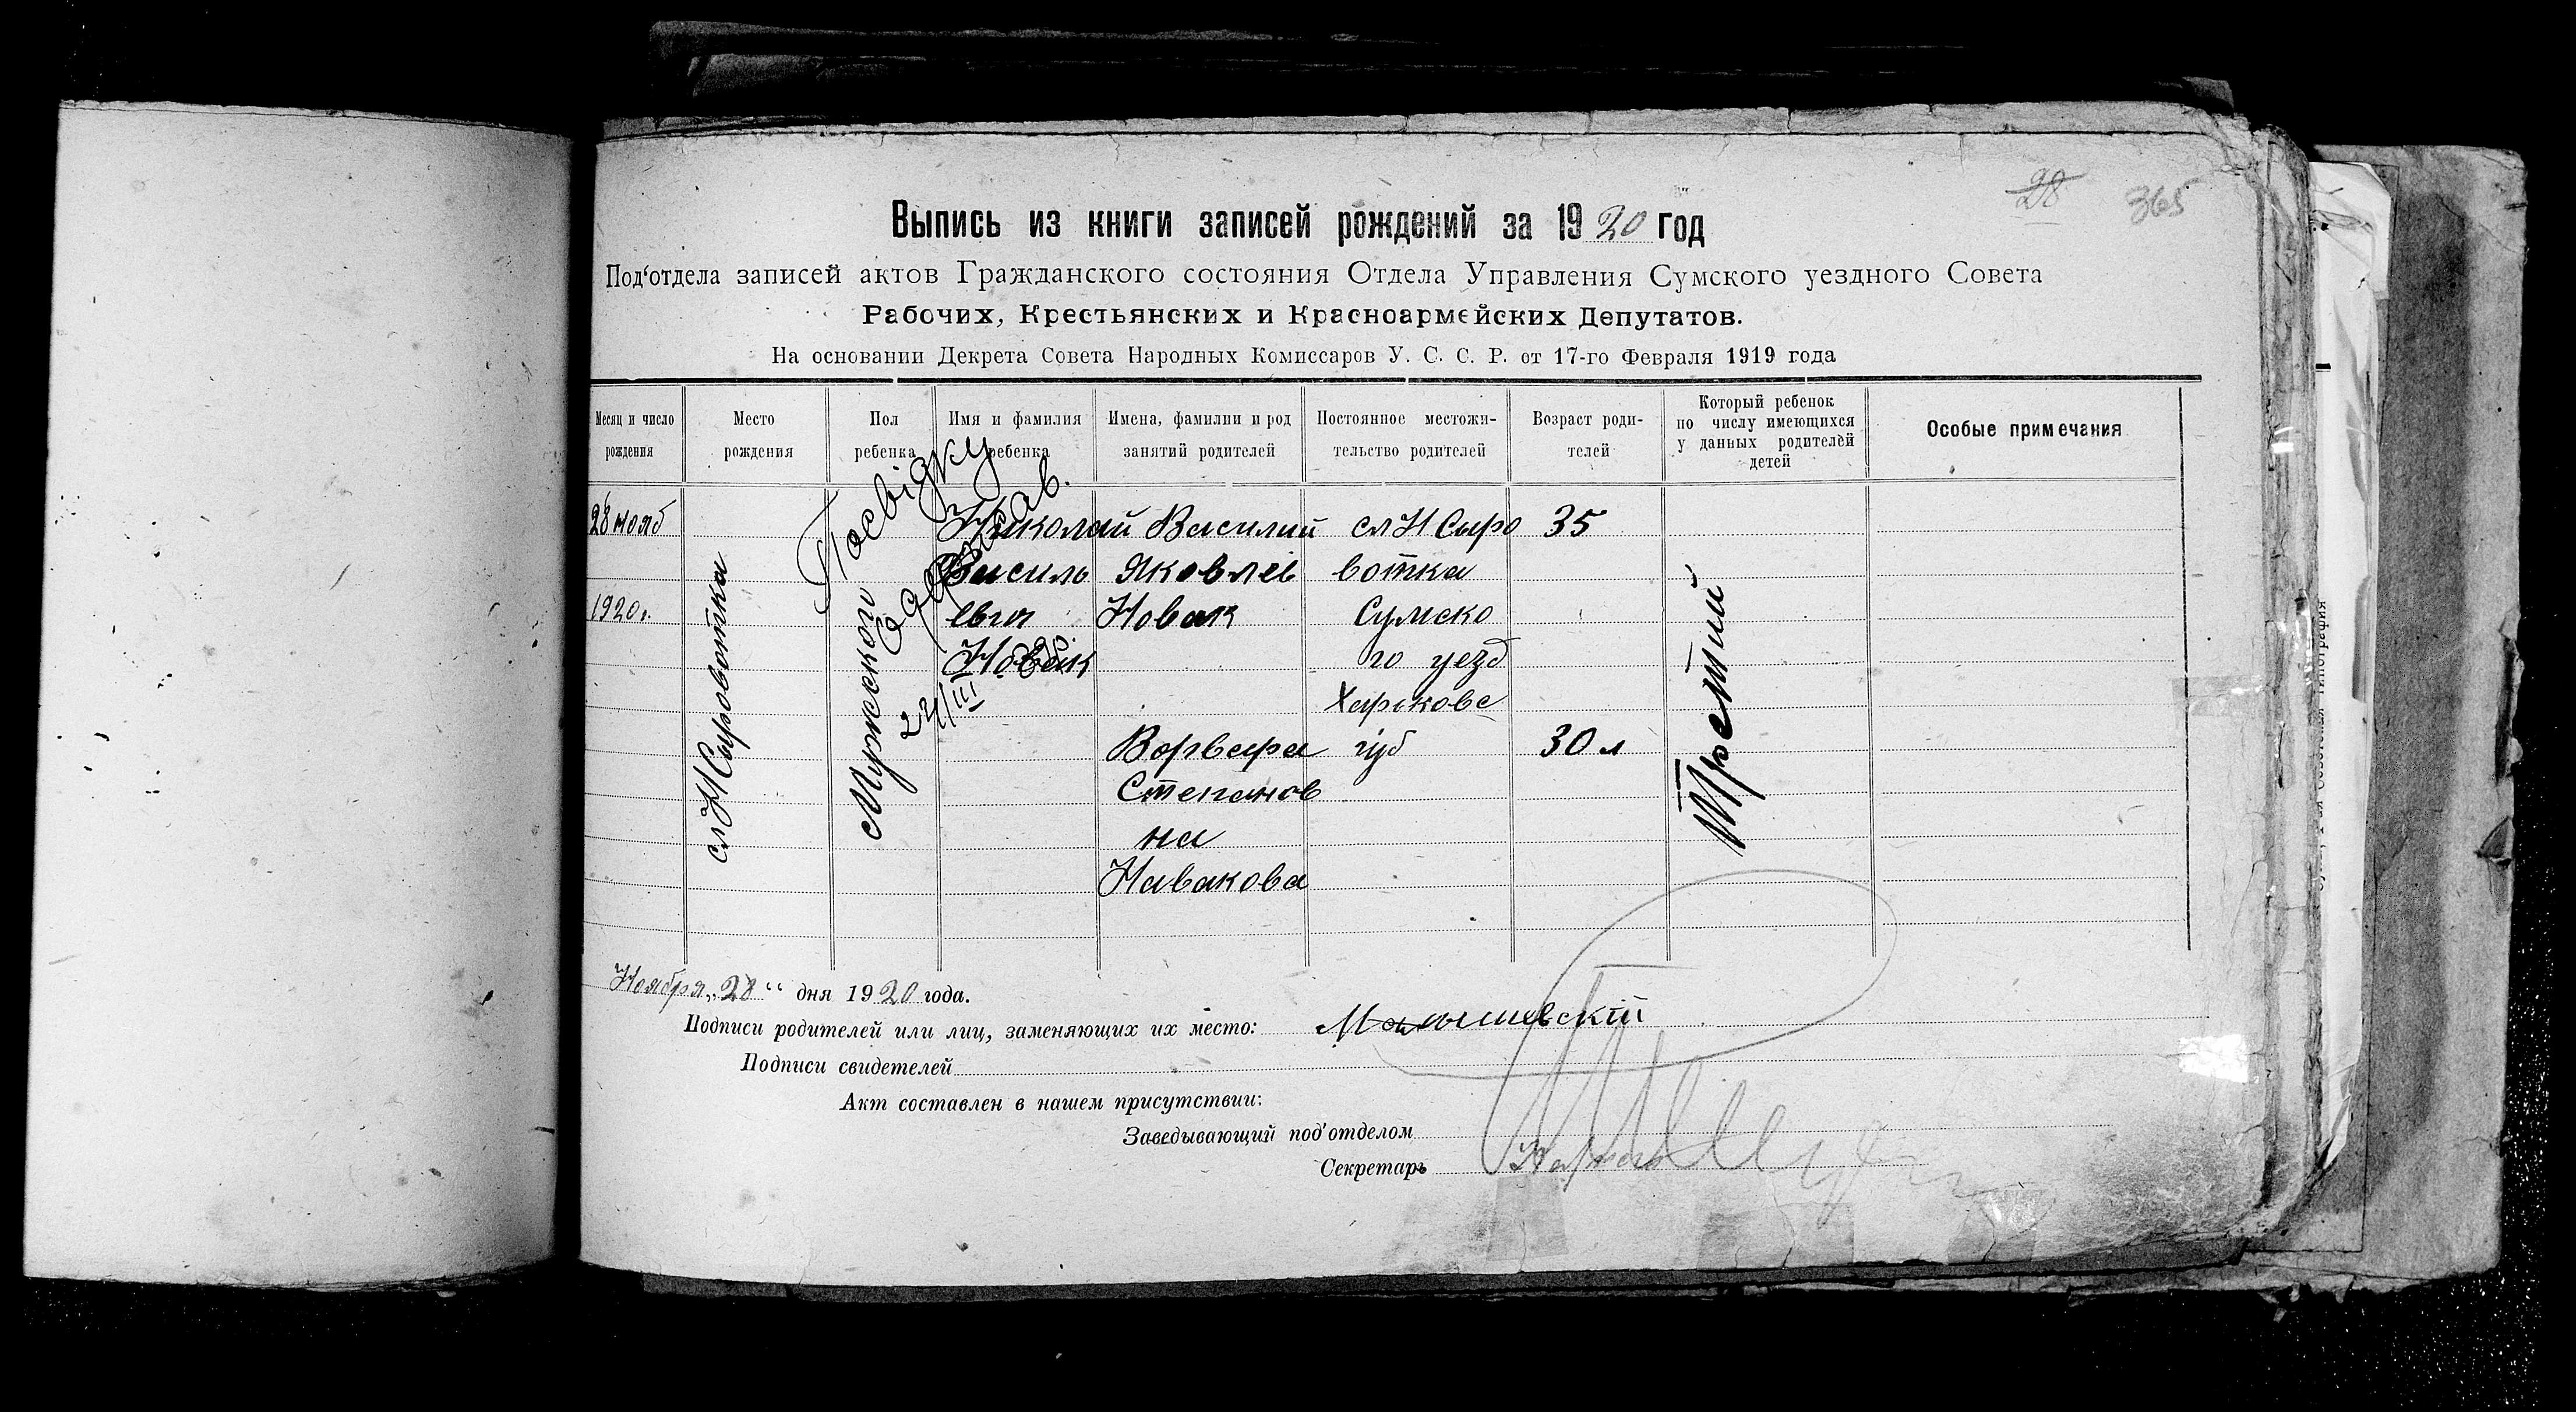 28 365
Выпись из книги записей рождений за 1920 год
Под‘отдела записей актов Гражданского состояния Отдела Управления Сумского уездного Совета
Рабочих, Крестьянских и Красноармейских Депутатов.
На основании Декрета Совета Народных Комиссаров У. С. С. Р. от 17-го Февраля 1919 года
Месяц и число рождения
Место рождения
Пол ребенка
Имя и фамилия ребенка
Имена, фамилии и род занятий родителей
Постоянное местожи-
тельство родителей
Возраст роди-
телей
Который ребенок
по числу имеющихся
у данных родителей
детей
Особые примечания
28 нояб
1920 г.
сл Н Сыроватка
Мужского
Посвідку
22/III
Николай
Василь
евич
Новак
Василий
Яковлев
Новак
Ворвара
Степанов
на
Навакова
сл Н Сыро
вотка
Сумско
го уезд
Харковс
губ
35
30 л
Третий
Ноября „28“ дня 1920 года.
Подписи родителей или лиц, заменяющих их место:
Подписи свидетелей
Акт составлен в нашем присутствии:
Заведывающий под‘отделом
Секретарь